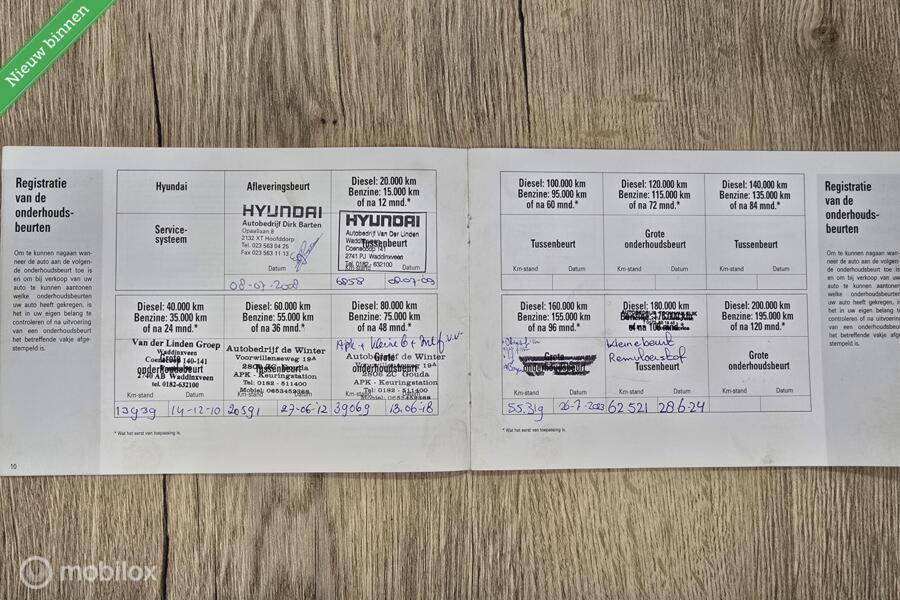 Nieuw binnen
Registratie
van de
onderhouds-
beurten
Om te kunnen nagaan wan-
neer de auto aan de volgen-
de onderhoudsbeurt toe is
en om bij verkoop van uw
auto te kunnen aantonen
welke onderhoudsbeurten
uw auto heeft gekregen, is
het in uw eigen belang te
controleren of na uitvoering
van een onderhoudsbeurt
het betreffende vakje afge-
stempeld is.
10
Hyundai
Service-
systeem
Afleveringsbeurt
HYUNDAI
Autobedrijf Dirk Barten
Opaallaan 8
2132 XT Hoofddorp
Tel. 023 563 04 25
Fax 023 563 11 13
Datum
08-07-2008
Diesel: 20.000 km
Benzine: 15.000 km
of na 12 mnd.*
HYUNDAI
Autobedrijf Van Der Linden
Waddinxveen
Tussenbeurt
Coenecoop 141
2741 PJ Waddinxveen
Tel. 0182 - 632100
Km-stand Datum
6858
Diesel: 40.000 km
Benzine: 35.000 km
of na 24 mnd.*
Van der Linden Groep
Waddinxveen
Coenecoop 140-141
Grote
onderhoudsbeurt
2740 AB Waddinxveen
tel. 0182-632100
Km-stand Datum
13939 14-12-10
Diesel: 60.000 km
Benzine: 55.000 km
of na 36 mnd.*
Autobedrijf de Winter
Voorwillenseweg 19A
2806 ZC Gouda
Tussenbeurt
APK - Keuringstation
Tel: 0182 - 511400
Mobiel: 0653459388
Km-stand Datum
20591 27-06-12
Diesel: 80.000 km
Benzine: 75.000 km
of na 48 mnd.*
Apk + kleine b +
Autobedrijf de Winter
Voorwillenseweg 19A
Grote
2806 ZC Gouda
onderhoudsbeurt
APK - Keuringstation
Tel: 0182 - 511400
Mobiel: 0653459388
Km-stand Datum
39069 13.06-18
* Wat het eerst van toepassing is.
Diesel: 100.000 km
Benzine: 95.000 km
of na 60 mnd.*
Tussenbeurt
Km-stand Datum
Diesel: 120.000 km
Benzine: 115.000 km
of na 72 mnd.*
Grote
onderhoudsbeurt
Km-stand Datum
Diesel: 140.000 km
Benzine: 135.000 km
of na 84 mnd.*
Tussenbeurt
Km-stand Datum
Diesel: 160.000 km
Benzine: 155.000 km
of na 96 mnd.*
Grote
onderhoudsbeurt
Km-stand Datum
55.319 26-7-2023
Diesel: 180.000 km
Kleinebeurt
Remvloeistof
Tussenbeurt
Km-stand Datum
62521 28-6-24
Diesel: 200.000 km
Benzine: 195.000 km
of na 120 mnd.*
Grote
onderhoudsbeurt
Km-stand Datum
* Wat het eerst van toepassing is.
Registratie
van de
onderhouds-
beurten
Om te kunnen nagaan
neer de auto aan de volgen-
de onderhoudsbeurt toe is
en om bij verkoop van uw
auto te kunnen aantonen
welke onderhoudsbeurten
uw auto heeft gekregen, is
het in uw eigen belang te
controleren of na uitvoering
van een onderhoudsbeurt
het betreffende vakje afge-
stempeld is.
mobilox